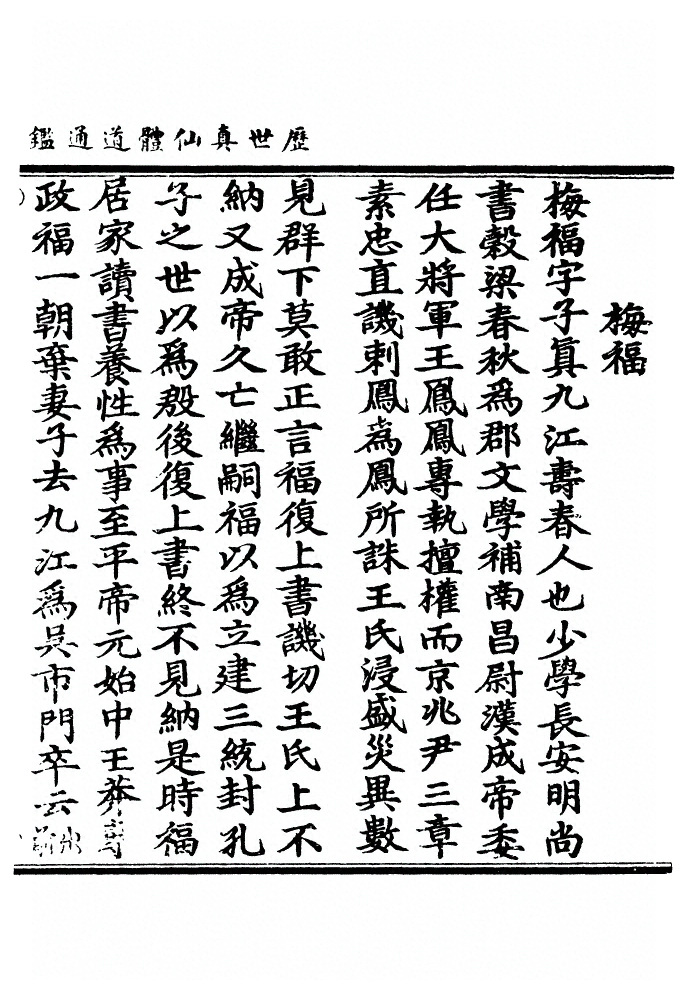 歷世真仙體道通鑑
梅福
梅福字子真九江壽春人也少學長安明尚
書穀梁春秋為郡文學補南昌尉漢成帝委
任大將軍王鳳鳳專執擅權而京兆尹王章
素忠直譏刺鳳為鳳所誅王氏浸盛災異數
見群下莫敢正言福復上書譏切王氏上不
納又成帝久亡繼嗣福以為立建三統封孔
子之世以為殷後復上書終不見納是時福
居家讀書養性為事至平帝元始中王莽專
政福一朝棄妻子去九江為吳市門卒云